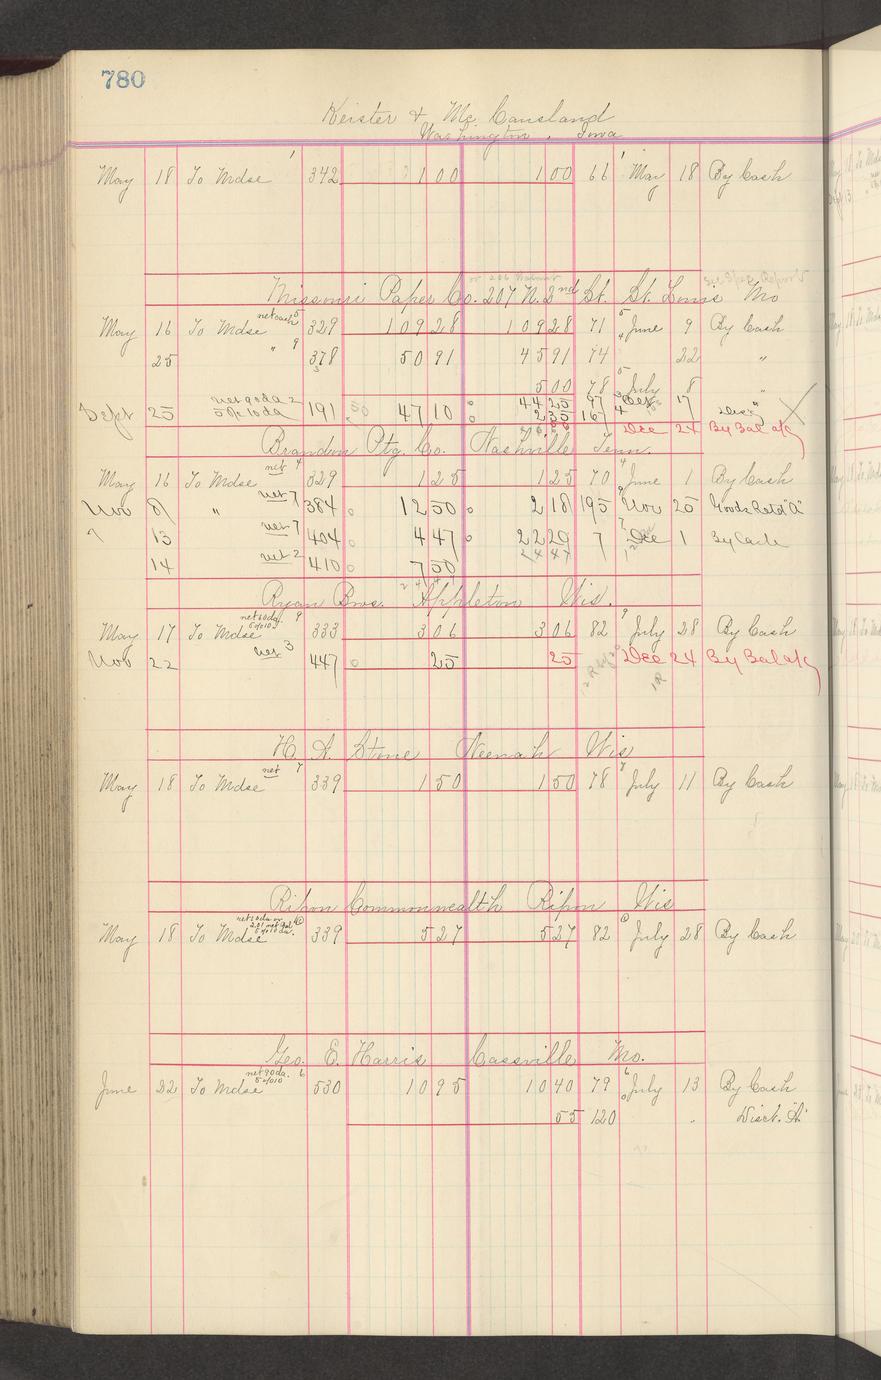 780
Keister & Mc Causland
Washington, Iowa
May 18 To Mdse 342 1 00 1 00 66 May 18 By Cash
or 206 Walnut
Missouri Paper Co. 207 N. 2nd St. St. Louis Mo
May 16 To Mdse net cash 5 329 109 28 109 28 71 June 9 By Cash
25 " 9 378 50 91 45 91 74 22 "
5 00 78 July 8 "
Sept 25 net 90 da 2 5% 10 da 191 47 10 44 25 97 Oct 17 "
2 35 167
Dec 24 By Bal a/c
Brandon Ptg. Co. Nashville Tenn.
May 16 To Mdse net 4 329 1 25 1 25 70 June 1 By Cash
Nov 8 " net 7 384 12 50 2 18 195 Nov 25 Goods Retd "A"
" 13 net 7 404 4 47 22 29 7 Dec 1 By Cash
14 net 2 410 7 50 24 47
24 47
Ryan Bros. Appleton Wis.
May 17 To Mdse net 60 da. 5% 10 9 333 3 06 3 06 82 July 28 By Cash
Nov 22 net 3 447 25 25 Dec 24 By Bal a/c
H. A. Stone Neenah Wis
May 18 To Mdse net 7 339 1 50 1 50 78 July 11 By Cash
Ripon Commonwealth Ripon Wis
May 18 To Mdse 339 5 27 5 27 82 July 28 By Cash
Geo. E. Harris Cassville Mo.
June 22 To Mdse net 90 da. 5% 10 6 530 10 95 10 40 79 July 13 By Cash
55 120 " Disct. "A"